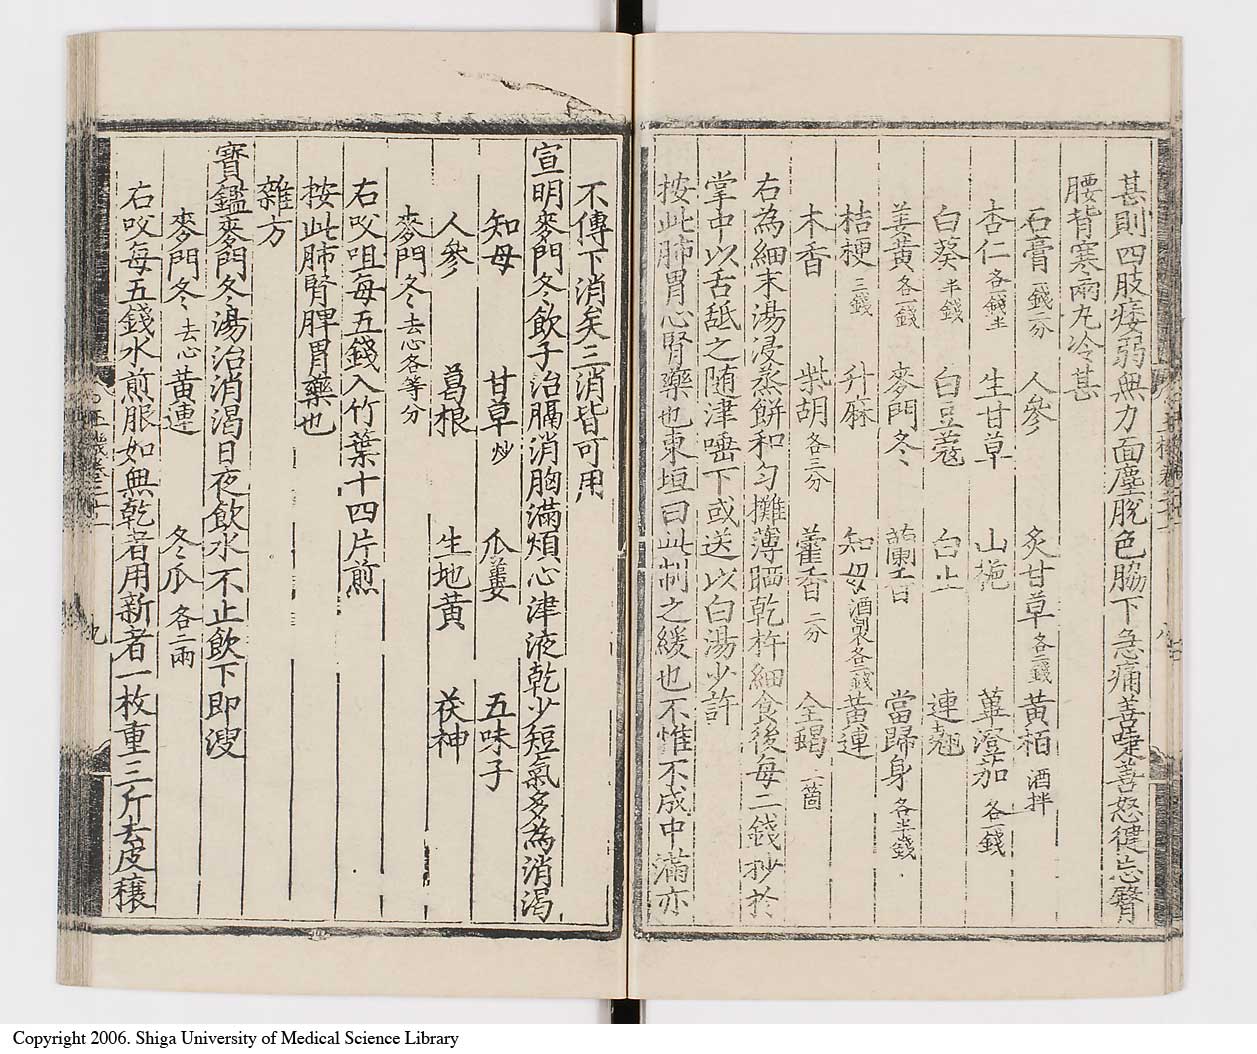 甚則四肢痿弱無力面塵脫色脇下急痛善嚏善怒健忘臀
腰背寒兩丸冷甚
石膏一錢二分 人參 炙甘草各二錢 黃栢酒拌
杏仁各一錢半 生甘草 山梔 蓽澄茄各一錢
白葵半錢 白豆蔻 白芷 連翹
姜黃各一錢 麥門冬 蘭香 當歸身各半錢
桔梗三錢 升麻 知母酒製各二錢 黃連
木香 柴胡各三分 藿香二分 全蝎一箇
右為細末湯浸蒸餅和勻攤薄晒乾杵細食後每二錢抄於
掌中以舌舐之隨津唾下或送以白湯少許
按此肺胃心腎藥也東垣曰此制之緩也不惟不成中滿亦
不傳下消矣三消皆可用
宣明麥門冬飲子治膈消胸滿煩心津液乾少短氣多為消渴
知母 甘草炒 瓜蔞 五味子
人參 葛根 生地黃 茯神
麥門冬去心各等分
右㕮咀每五錢入竹葉十四片煎
按此肺腎脾胃藥也
雜方
寶鑑麥門冬湯治消渴日夜飲水不止飲下即溲
麥門冬去心 黃連 冬瓜各二兩
右㕮每五錢水煎服如無乾者用新者一枚重三斤去皮穰
九
Copyright 2006. Shiga University of Medical Science Library